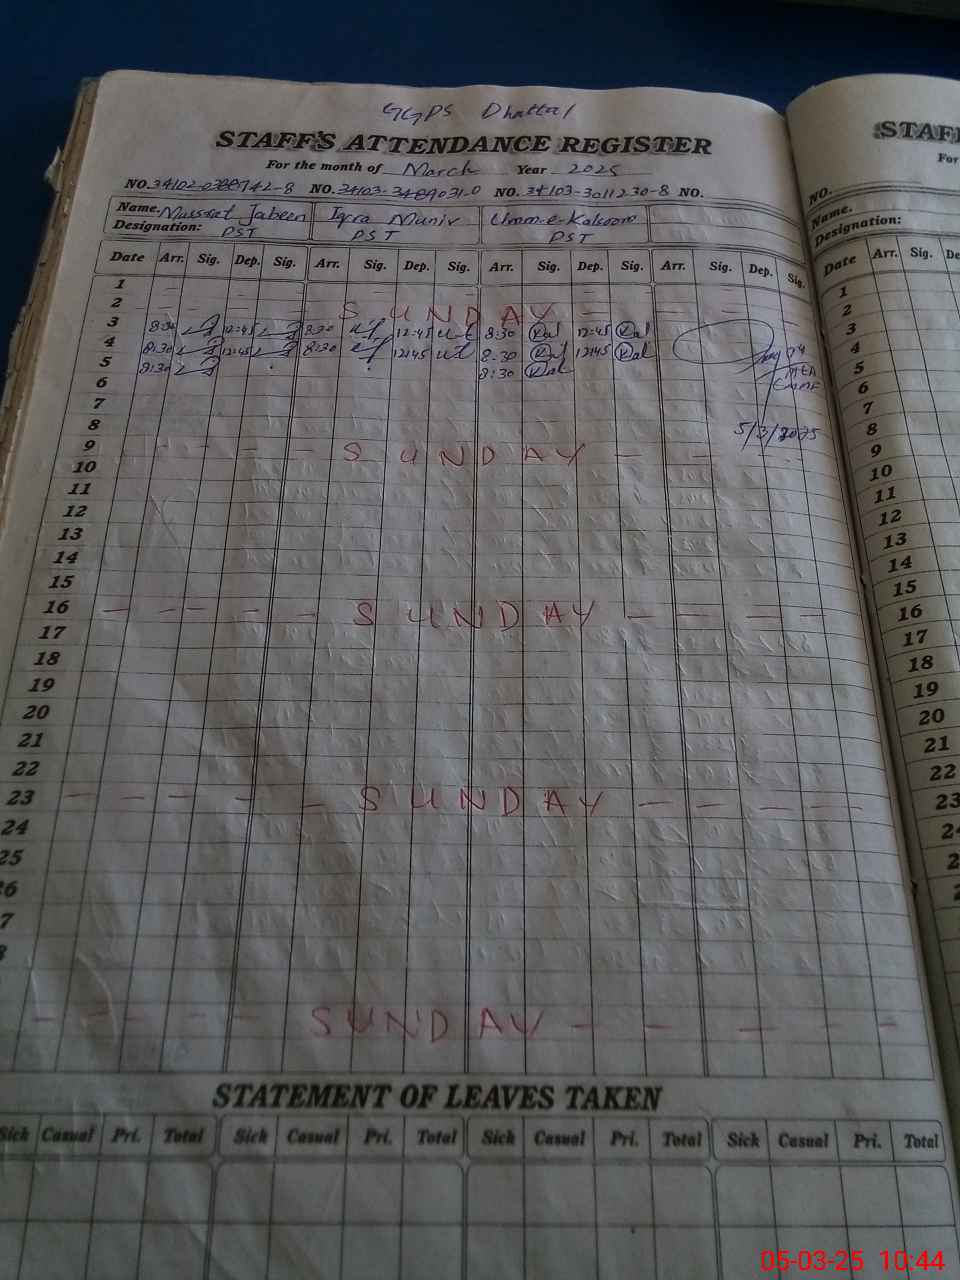 GGPS Dhattal
STAFF'S ATTENDANCE REGISTER
For the month of March Year 2025
NO. NO. 34103-3489031-0 NO. 34103-3011230-8 NO.
Name. Mussrat Jabeen Iqra Munir Umm-e-Kalsoom
Designation: PST PST PST
Date Arr. Sig. Dep. Sig. Arr. Sig. Dep. Sig. Arr. Sig. Dep. Sig. Arr. Sig. Dep. Sig.
1
2 SUNDAY
3 8:30 12:45 8:30 12:45 8:30 Kal 12:45 Kal
4 8:30 12:45 8:30 12:45 8:30 Kal 12:45 Kal
5 8:30 8:30 Kal
6
7
8 5/3/2025
9 SUNDAY
10
11
12
13
14
15
16 SUNDAY
17
18
19
20
21
22
23 SUNDAY
24
25
26
7
SUNDAY
STATEMENT OF LEAVES TAKEN
Sick Casual Pri. Total Sick Casual Pri. Total Sick Casual Pri. Total Sick Casual Pri. Total
STAF
For
NO.
Name.
Designation:
Date Arr. Sig. De
1
2
3
4
5
6
7
8
9
10
11
12
13
14
15
16
17
18
19
20
21
22
23
05-03-25 10:44